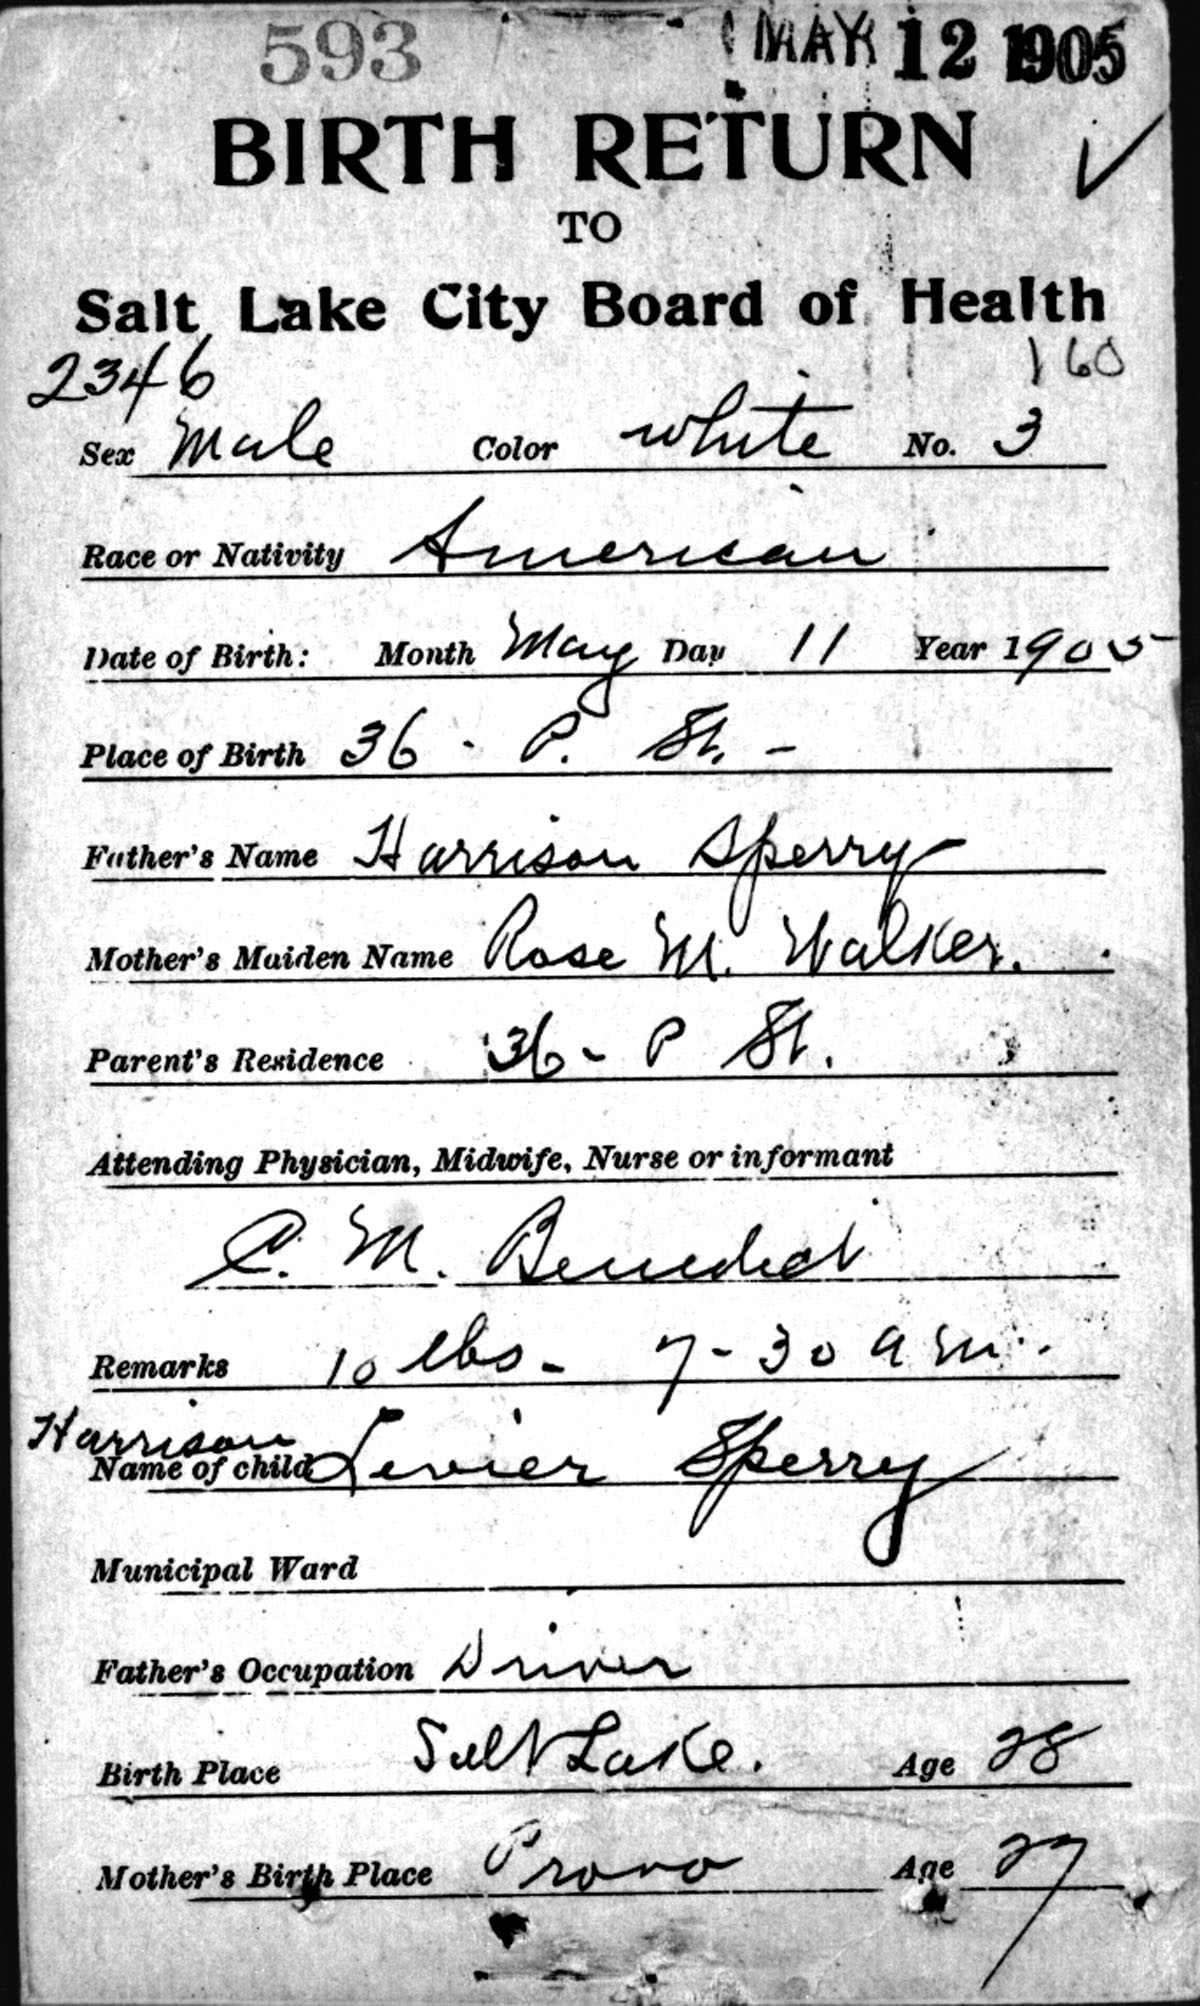 593 MAY 12 1905
BIRTH RETURN
TO
Salt Lake City Board of Health
2346 160
Sex Male Color white No. 3
Race or Nativity American
Date of Birth: Month May Day 11 Year 1905
Place of Birth 36 - P. St. -
Father's Name Harrison Sperry
Mother's Maiden Name Rose M. Walker.
Parent's Residence 36 - P St.
Attending Physician, Midwife, Nurse or informant
C. M. Benedict
Remarks 10 lbs - 7-30 a m.
Harrison
Name of child Levier Sperry
Municipal Ward
Father's Occupation Driver
Birth Place Salt Lake. Age 28
Mother's Birth Place Provo Age 27